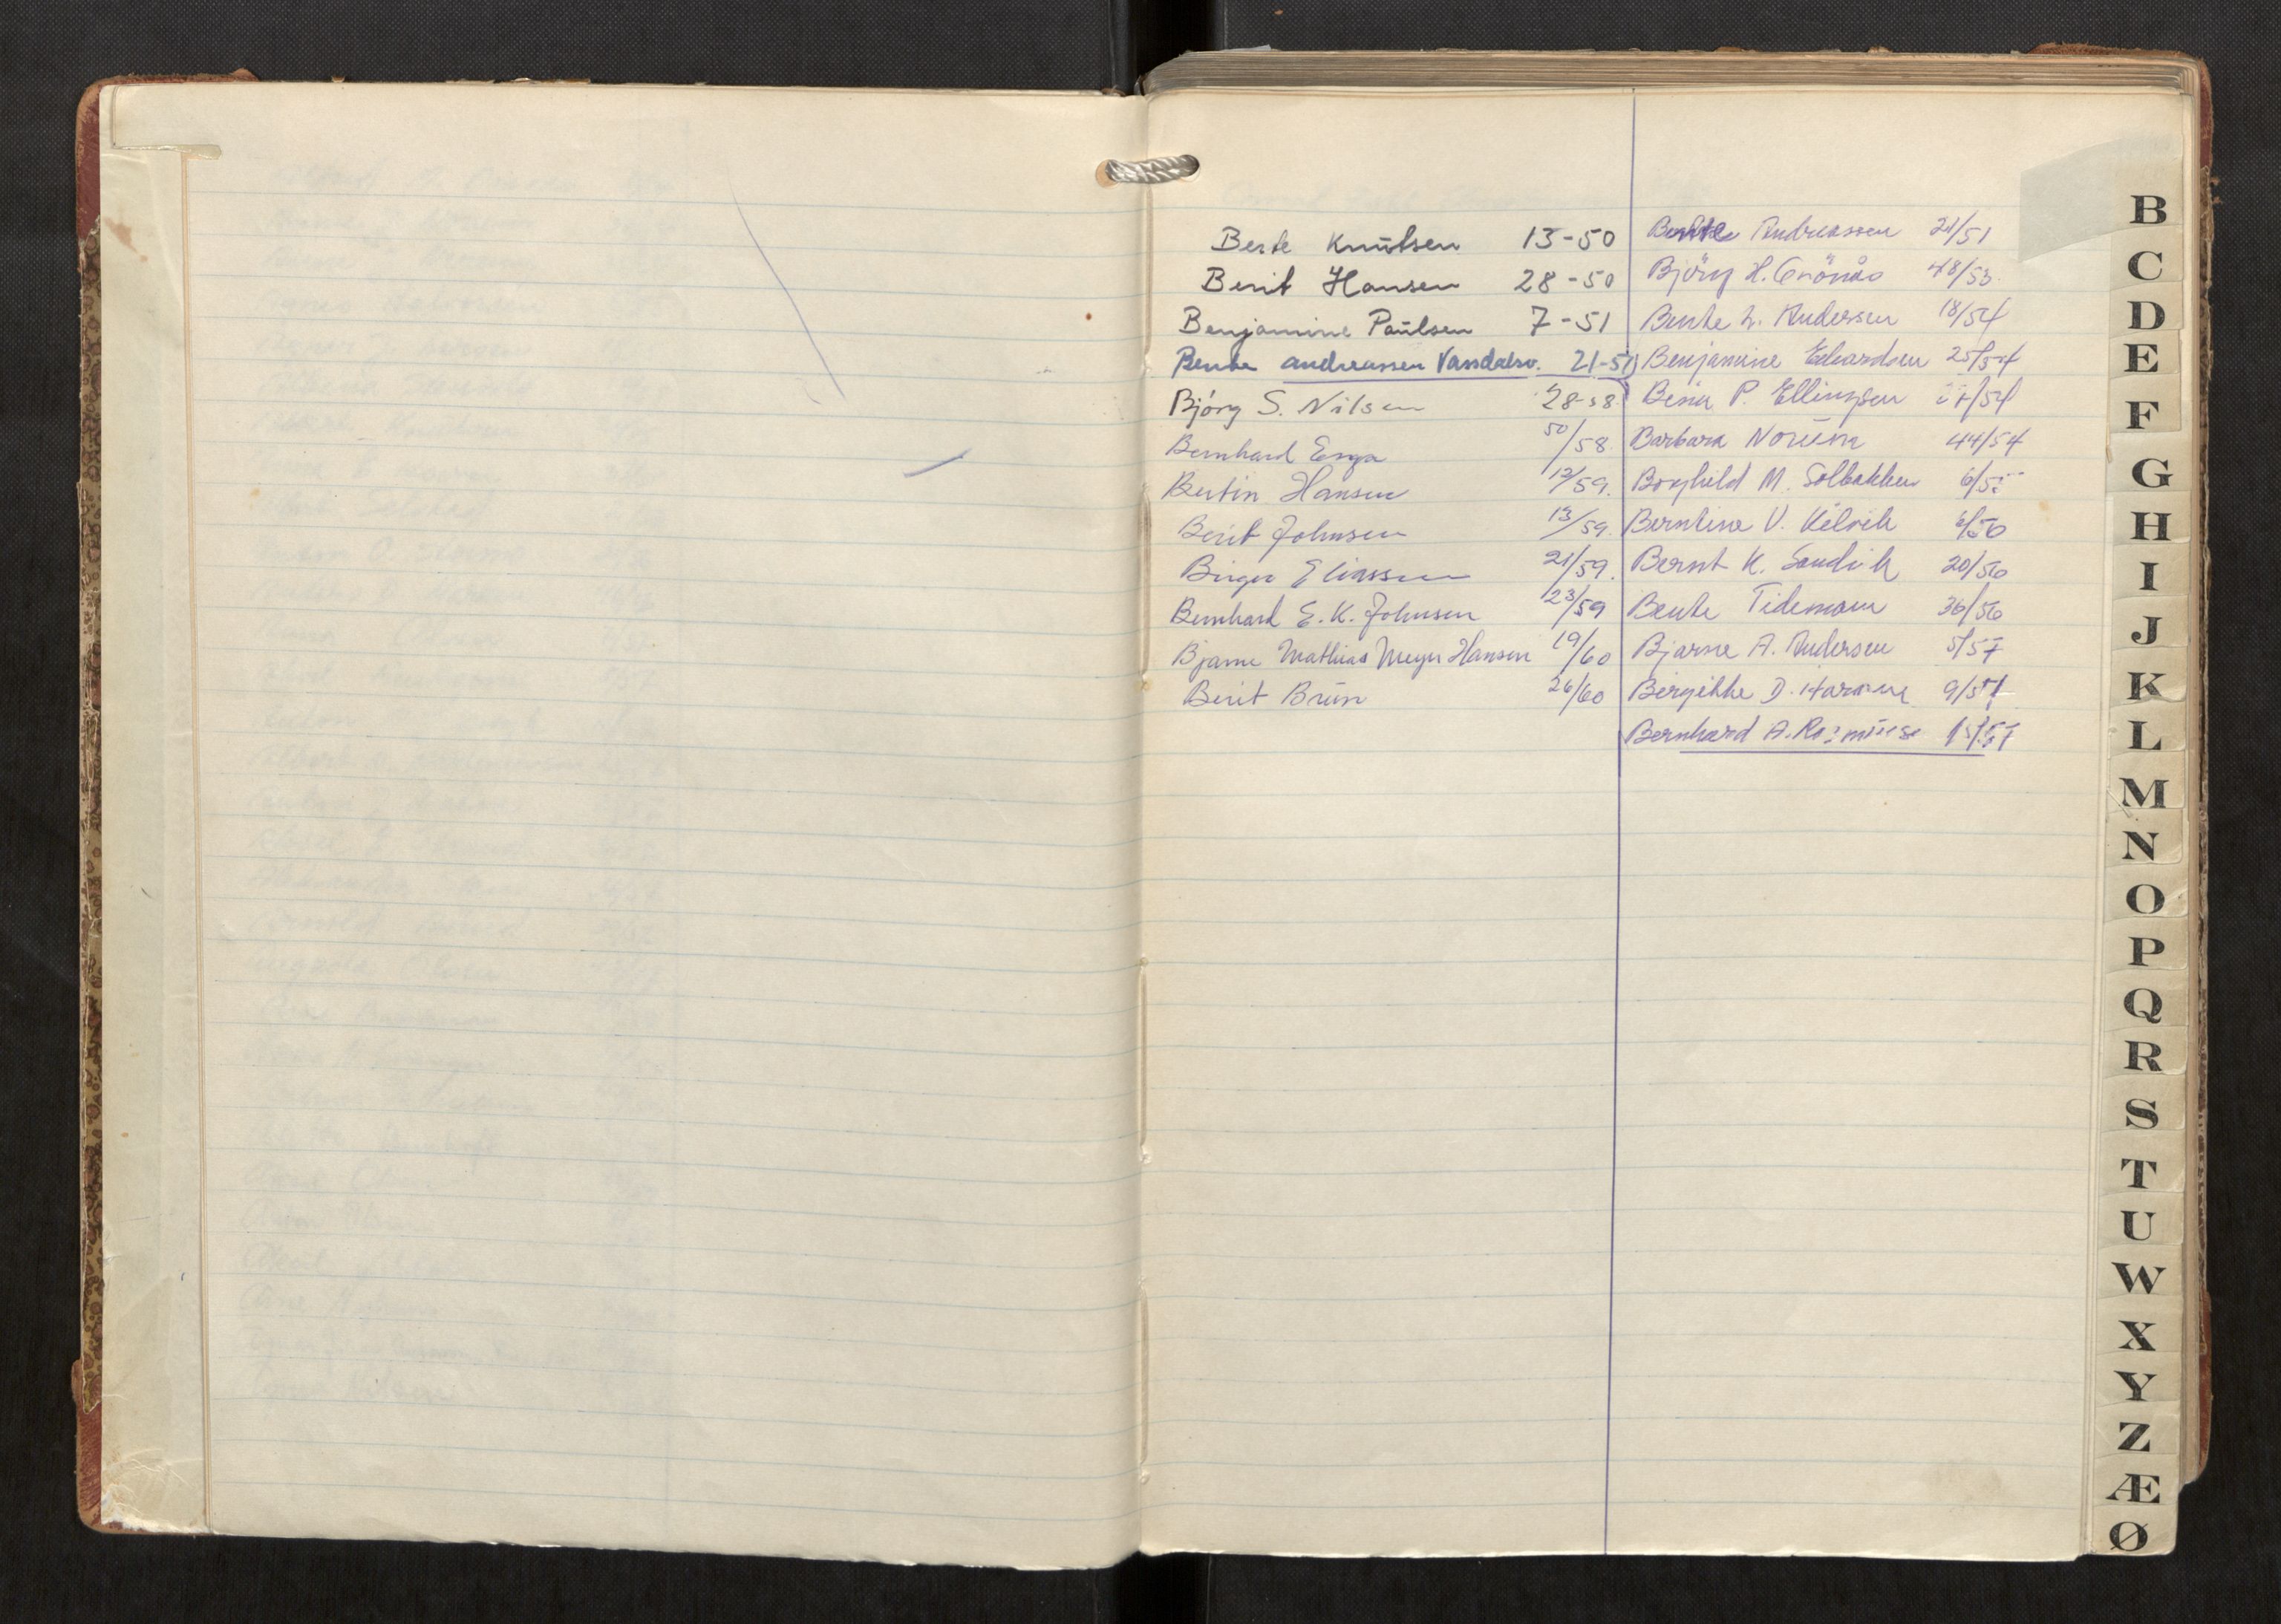 Berte Knutsen 13-50
Berit Hansen 28-50
Benjamine Paulsen 7-51
Bente Andreassen Vassdalsv. 21-51
Bjórg S. Nilsen 28-58
Bernhard Enga 50/58.
Bertin Hansen 12/59.
Berit Johnsen 13/59.
Birger Eliassen 21/59.
Bernhard E. K. Johnsen 23/59
Bjarne Mathias Meyer Hansen 19/60
Berit Brun 26/60
Bente Andreassen 21/51
Björg H. Grönås 48/53.
Bente L. Andersen 18/54
Benjamine Edvardsen 25/54
P. Ellingsen /54
Barbara Norum 44/54
Borghild M. Solbakken 6/55
Berntine V. Kilvik 6/56
Bernt K. Sandvik 20/56
Bente Tidemann 36/56
Bjarne A. Andersen 5/57
Birgithe D. 9/57
Bernhard A. 15/57
B
C
D
E
F
G
H
I
J
K
L
M
N
O
P
Q
R
S
T
U
W
X
Y
Z
Æ
Ø